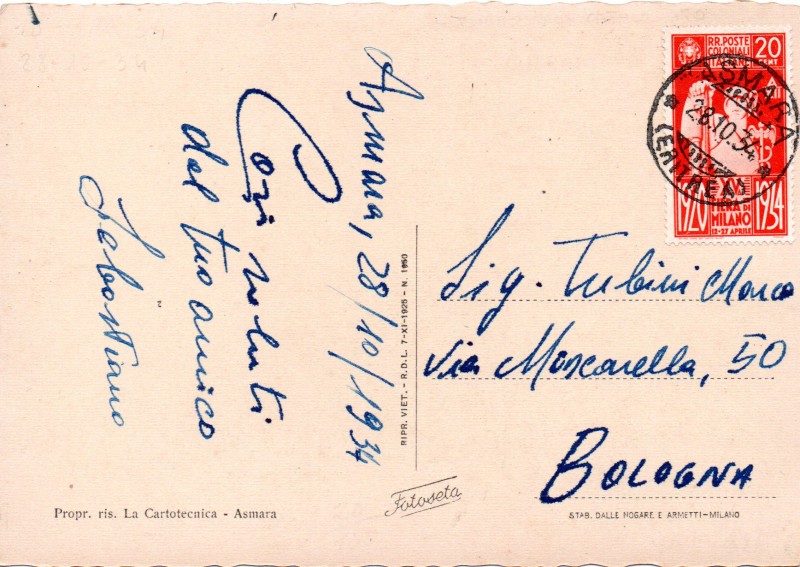 Asmara, 28/10/1934
Cari saluti
dal tuo amico
Sebastiano
RIPR. VIET. - R.D.L. 7-XI-1925 - N. 1950
Propr. ris. La Cartotecnica - Asmara
Fotoseta
RR. POSTE
COLONIALI
ITALIANE
20
CENT
XV
FIERA DI
MILANO
12-27 APRILE
1920
1934
ASMARA
28.10.34
(ERITREA)
Sig. Tubini Marco
Via Moscarella, 50
BOLOGNA
STAB. DALLE NOGARE E ARMETTI-MILANO